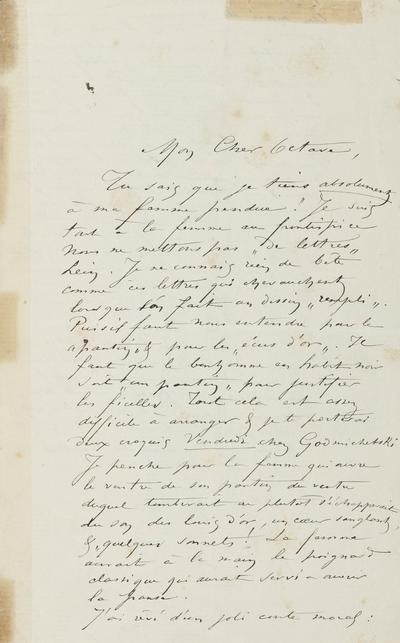 Mon Cher Octave,
Tu sais que je tiens absolument
à ma femme pendue ! Je suis
tout à la femme au frontispice
Nous ne mettons pas „de lettres„
hein. Je ne connais rien de bête
comme ces lettres qui chevauchent
lorsque l'on fait un dessin „rempli„.
Puis il faut nous entendre pour le
„pantin„ & pour les „écus d'or„. Il
faut que le bonhomme en habit noir
soit „un pantin„ pour justifier
les ficelles. Tout cela est assez
difficile à arranger & je te porterai
deux croquis Vendredi chez
Je penche pour la femme qui ouvre
le ventre de son pantin du ventre
duquel tomberait ou plutôt s'échapperait
du son des louis d'or, un cœur sanglant,
& „quelques sonnets„! La femme
aurait à la main le poignard
classique qui aurait servi à ouvrir
la panse.
J'ai rêvé d'un joli conte moral :